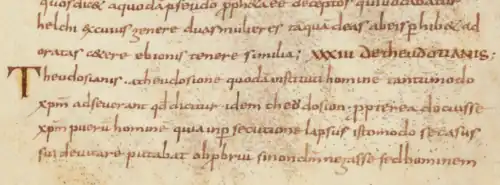 quos dieu& aquodā pseudo proph&a e& deceptos qui vocabatur
helchi & cuius genere duas mulieres ta quā deas ab eis phibe& ad
oratas c&ere ebionis tenere similia; XXXIII De theudotianis;
Theudosiani .. a theudosione quodā instituti homine tantummodo
xpm adseverant qd dicitur idem theodosion propterea docuisse
xpm purū homine quia inp secutione lapsus isto modo se casus
sui devitare putabat obpbriū si non dm negasse sed hominem